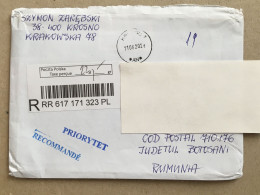 SZYMON ZARĘBSKI
38-400 KROSNO
KRAKOWSKA 78
Poczta Polska
Taxe perçue
R RR 617 171 323 PL
PRIORYTET
RECOMMANDÉ
COD POSTAL 710176
JUDEȚUL BOTOȘANI
RUMUNIA